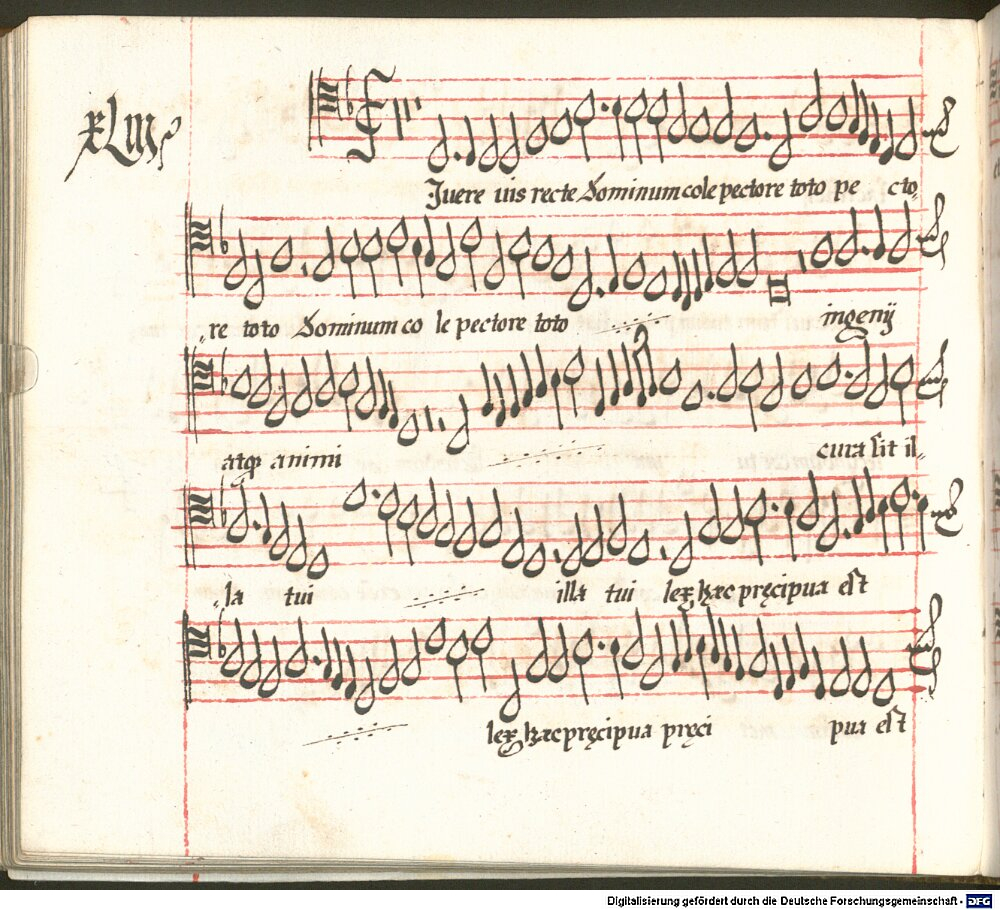 xLIII
Iuere uis recte Dominum cole pectore toto pe cto,
re toto Dominum co le pectore toto ingenij
atq animi cura sit il,
la tui illa tui lex hæc pręcipua est
lex hæc pręcipua pręci pua est
Digitalisierung gefördert durch die Deutsche Forschungsgemeinschaft - DFG